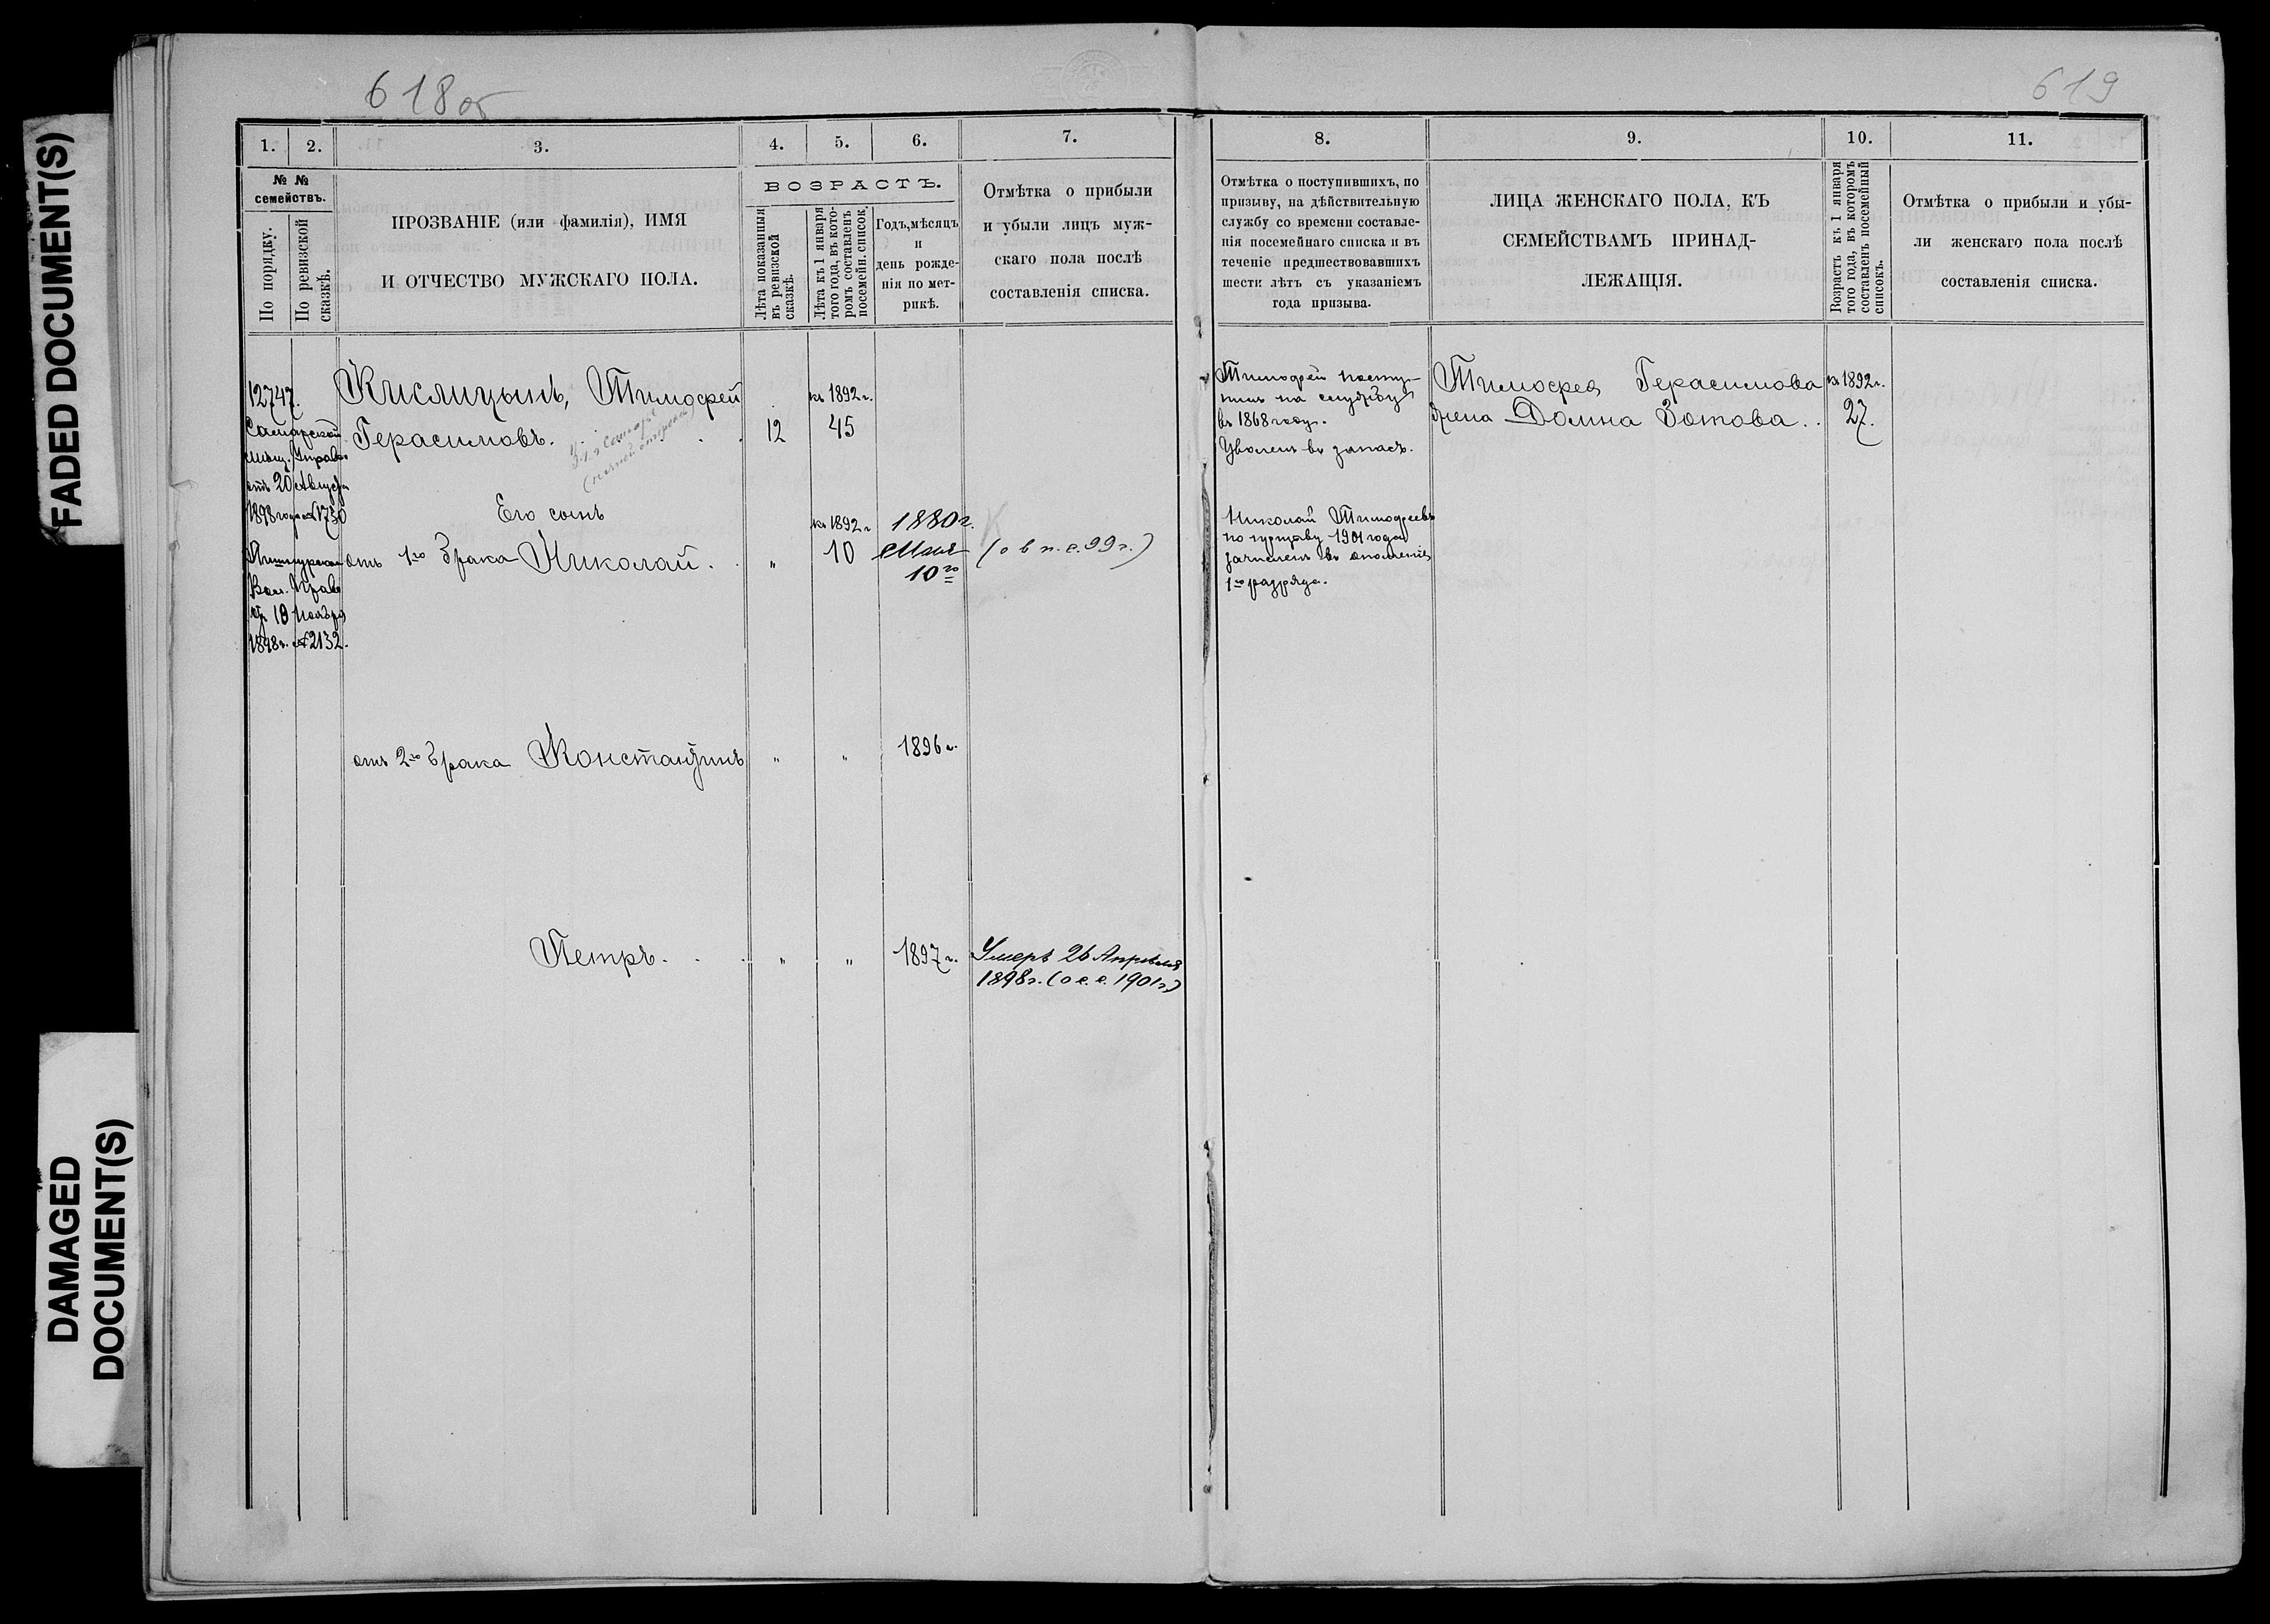 FADED DOCUMENT(S)
DAMAGED
DOCUMENT(S)
618об
1.
2.
3.
4.
5.
6.
7.
№ №
семействъ.
По порядку.
По ревизской
сказкѣ.
ПРОЗВАНІЕ (или фамилія), ИМЯ
И ОТЧЕСТВО МУЖСКАГО ПОЛА.
ВОЗРАСТЪ.
Лѣта показанныя
въ ревизской
сказкѣ.
Лѣта къ 1 января
того года, въ кото-
ромъ составленъ
посемейн. список.
Годъ, мѣсяцъ
и
день рожде-
нія по мет-
рикѣ.
Отмѣтка о прибыли
и убыли лицъ муж-
скаго пола послѣ
составленія списка.
12747.
Самарской
мѣщ. Управы
отъ 20 Августа
1898 года № 1730
Вол. Прав.
от 10 Ноября
1898г. № 2132.
Кислицынъ, Тимофей
Герасимовъ.
12
къ 1892 г.
45
Его сынъ
отъ 1го брака Николай.
"
къ 1892 г
10
1880 г.
Мая
10го
(о в п. с. 99 г.)
отъ 2го брака Константинъ
"
"
1896 г.
Петръ.
"
"
1897 г.
Умеръ 26 Апрѣля
1898 г. (о с. с. 1901 г.)
619
8.
9.
10.
11.
Отмѣтка о поступившихъ, по
призыву, на дѣйствительную
службу со времени составле-
нія посемейнаго списка и въ
теченіе предшествовавшихъ
шести лѣтъ съ указаніемъ
года призыва.
ЛИЦА ЖЕНСКАГО ПОЛА, КЪ
СЕМЕЙСТВАМЪ ПРИНАД-
ЛЕЖАЩІЯ.
Возрастъ къ 1 января
того года, въ которомъ
составленъ посемейный
списокъ.
Отмѣтка о прибыли и убы-
ли женскаго пола послѣ
составленія списка.
Тимофей посту-
пилъ на службу
въ 1868 году.
Уволенъ въ запасъ.
Николай Тимофеевъ
по призыву 1901 года
зачисленъ въ ополченіе
1го разряда.
Тимофея Герасимова
жена Домна Зотова.
къ 1892 г.
27.